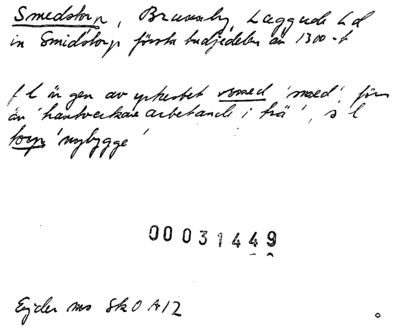 Smedstorp, Brunnby, Luggude hd
in Smidstorp första tredjedelen av 1300-t
f l är gen av yrkesbet smed 'smed', förr
än 'hantverkare arbetande i trä', s l
torp 'nybygge'
00031449
Ejder ms Sk O A12